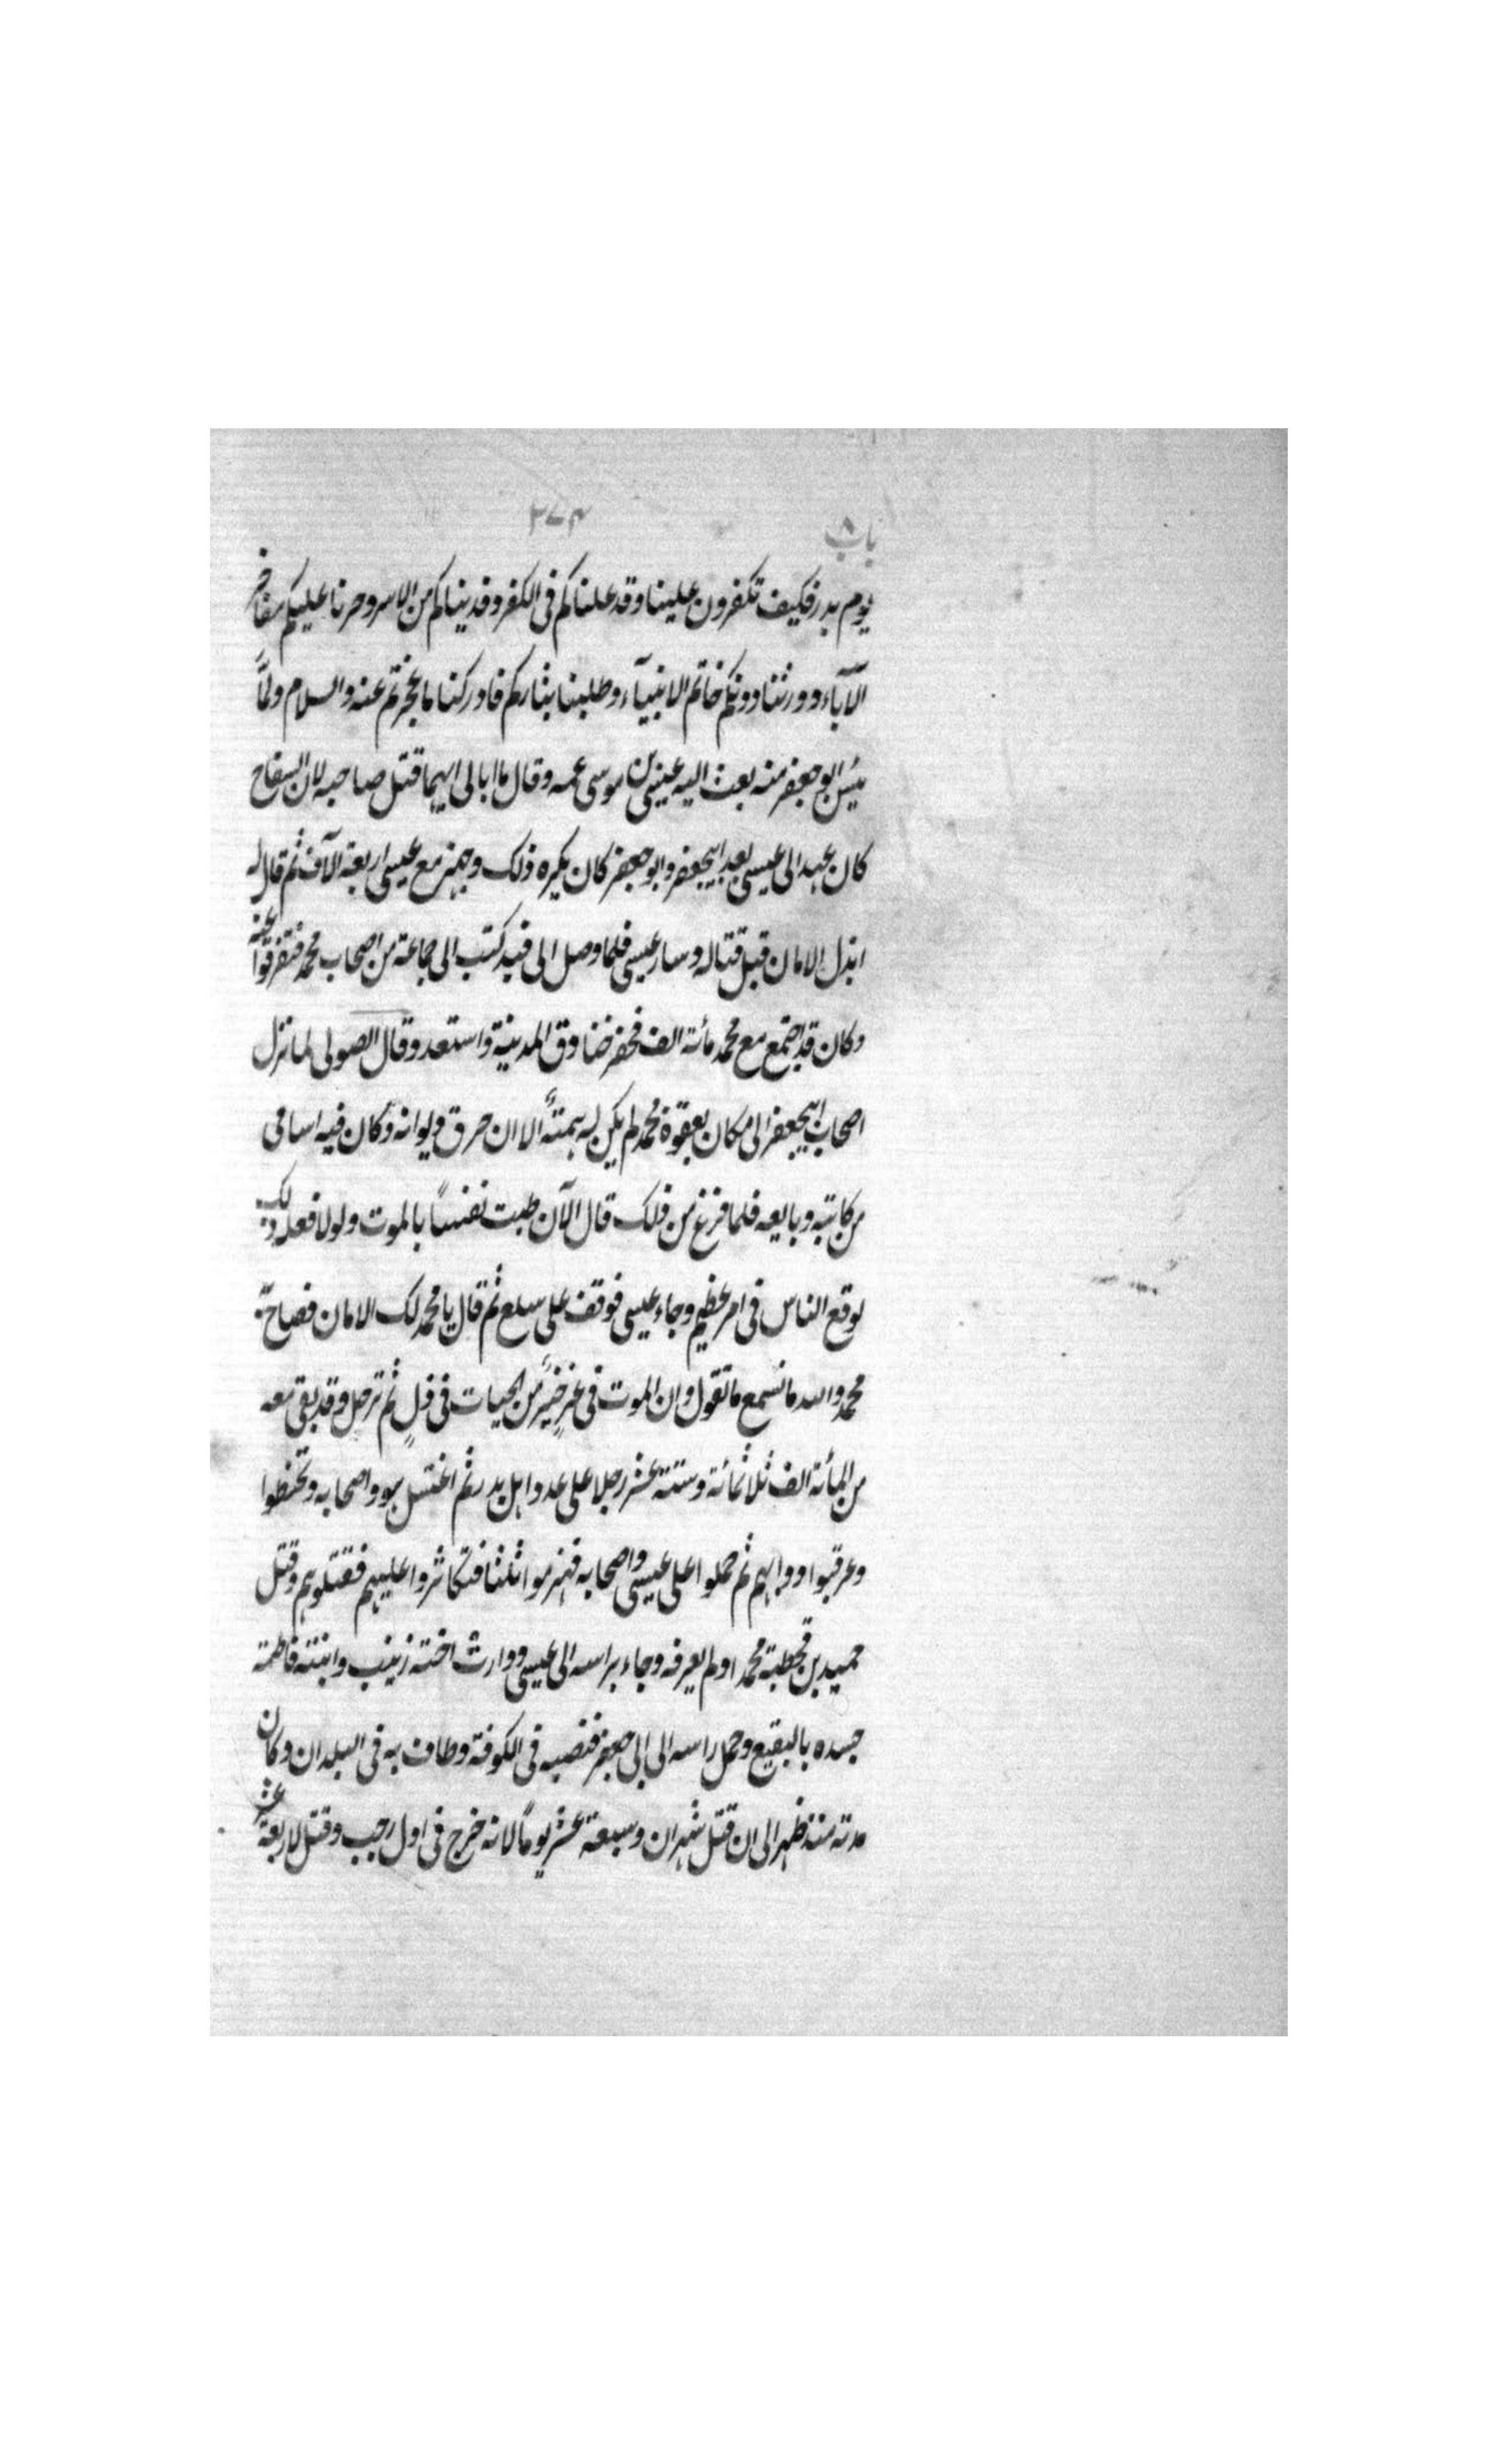 باب ٨
٣٧٤
يوم بدر فكيف تكفرون علينا وقد علناكم في الكفر وفديناكم من الاسر وحزنا عليكم مفاخر
الآباء وورثنا دونكم خاتم الانبيآء وطلبنا بثاركم فادركنا ما عجزتم عنه والسلام ولمّا
يئس ابو جعفر منه بعث اليه عيسى بن موسى عمه وقال ما ابالي ايهما قتل صاحبه لان السفاح
كان عهد الى عيسى بعد ابيجعفر وابو جعفر كان يكره ذلك وجهز مع عيسى اربعة الآف ثم قال له
ابذل الامان قبل قتاله وسار عيسى فلما وصل الى فيد كتب الى جماعة من اصحاب محمد فتفرقوا عنه
وكان قد اجتمع مع محمد مائة الف فحفر خنادق المدينة واستعد وقال الصولى لما نزل
اصحاب ابيجعفر الى مكان بعقوة محمد لم يكن له همّة الا ان حرق ديوانه وكان فيه اسامى
من كاتبه وبايعه فلما فرغ من ذلك قال الآن طبت نفسًا بالموت ولولا فعله ذلك
لوقع الناس في امر عظيم وجاء عيسى فوقف على سلع ثم قال يا محمد لك الامان فصاح به
محمد والله ما نسمع ما تقول وان الموت في عزٍ خيرٌ من الحيات في ذلٍ ثم ترجل وقد بقى معه
من المائة الف ثلاثمائة وستة عشر رجلا على عدد اهل بدر ثم اغتسل هو واصحابه وتحنطوا
وعرقبوا دوابهم ثم حملوا على عيسى واصحابه فهزموا ثلثا فتكاثروا عليهم فقتلوهم وقتل
حميد بن قحطبة محمدا ولم يعرفه وجاء براسه الى عيسى ووارث اخته زينب وابنته فاطمة
جسده بالبقيع وحمل راسه الى ابى جعفر فنصبه في الكوفة وطاف به في البلدان وكان
مدته منذ ظهر الى ان قتل شهران وسبعة عشر يومًا لانه خرج في اول رجب وقتل لاربعة عشر